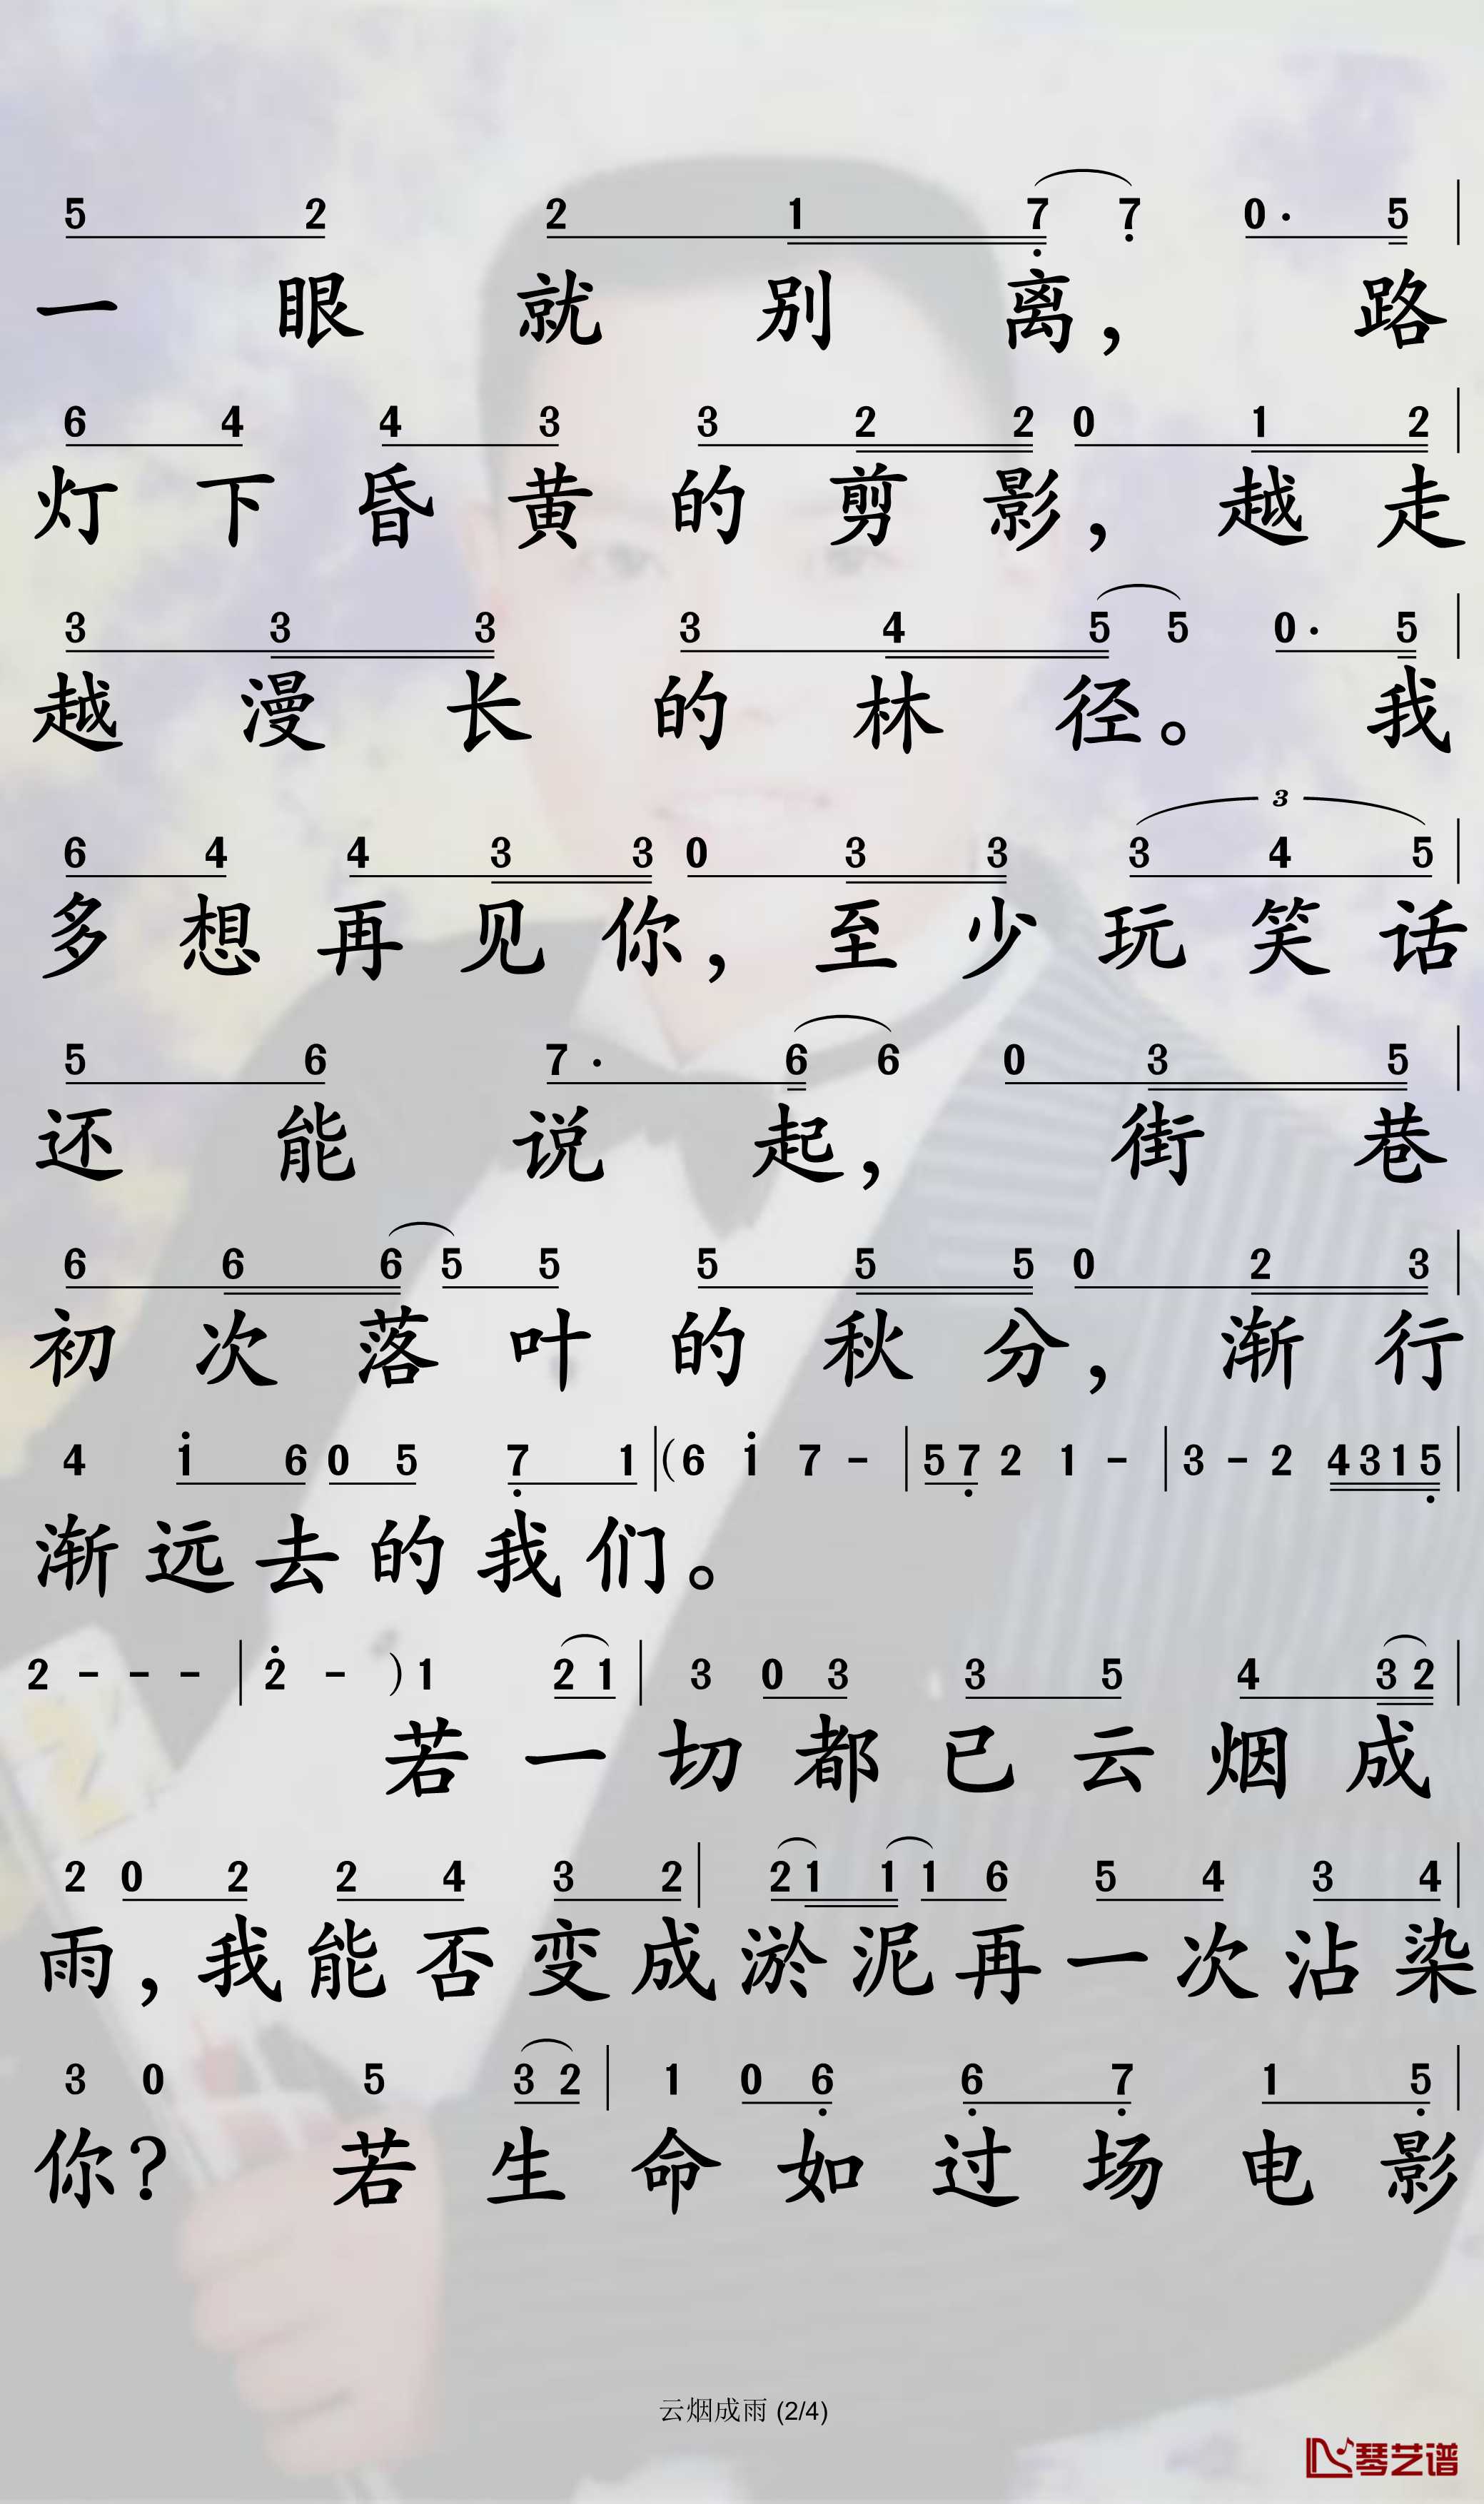 5 2 2 1 7 7 0· 5
一眼就别离，路
6 4 4 3 3 2 2 0 1 2
灯下昏黄的剪影，越走
3 3 3 3 4 5 5 0· 5
越漫长的林径。我
3
6 4 4 3 3 0 3 3 3 4 5
多想再见你，至少玩笑话
5 6 7· 6 6 0 3 5
还能说起，街巷
6 6 6 5 5 5 5 5 0 2 3
初次落叶的秋分，渐行
4 1 6 0 5 7 1 | (6 1 7 - | 5 7 2 1 - | 3 - 2 4 3 1 5 |
渐远去的我们。
2 - - - | 2 - ) 1 2 1 | 3 0 3 3 5 4 3 2 |
若一切都已云烟成
2 0 2 2 4 3 2 | 2 1 1 1 6 5 4 3 4 |
雨，我能否变成淤泥再一次沾染
3 0 5 3 2 | 1 0 6 6 7 1 5 |
你？若生命如过场电影
云烟成雨 (2/4)
琴艺谱